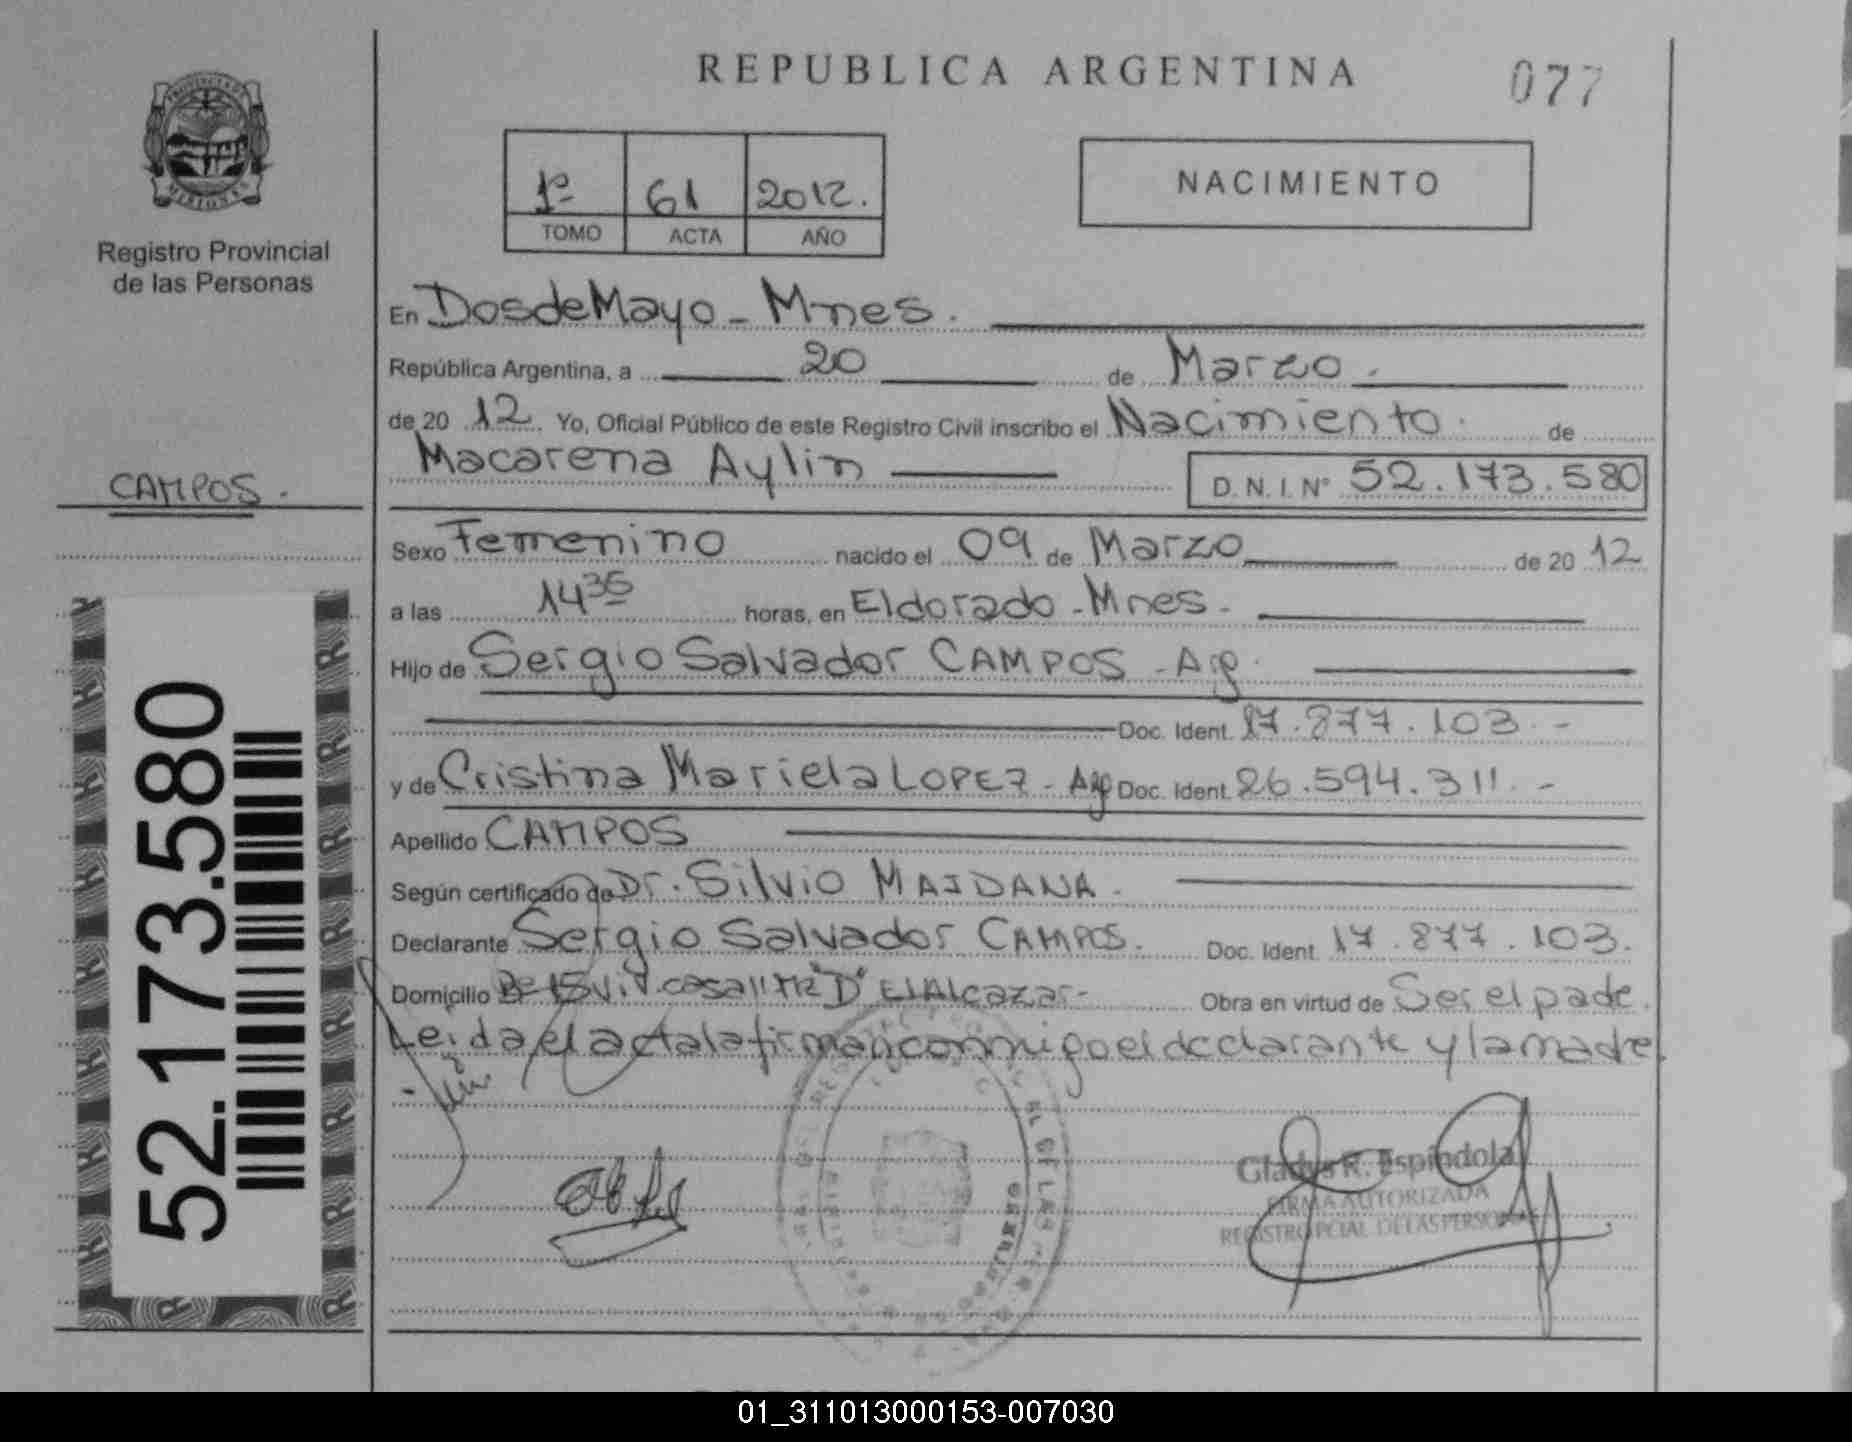 REPUBLICA ARGENTINA
077
PROVINCIA DE
MISIONES
Registro Provincial
de las Personas
1º 61 2012.
TOMO ACTA AÑO
NACIMIENTO
En Dos de Mayo - Mnes.
República Argentina, a 20 de Marzo.
de 20 12. Yo, Oficial Público de este Registro Civil inscribo el Nacimiento. de
Macarena Aylin D. N. I. Nº 52.173.580
CAMPOS.
Sexo Femenino nacido el 09 de Marzo de 20 12
a las 14 35 horas, en Eldorado - Mnes.
Hijo de Sergio Salvador CAMPOS - Arg.
Doc. Ident. 17.877.103.-
y de Cristina Mariela LOPEZ - Arg Doc. Ident. 26.594.311.-
Apellido CAMPOS
Según certificado de Dr. Silvio MAIDANA.
Declarante Sergio Salvador CAMPOS. Doc. Ident. 17.877.103.
Domicilio Bº 15 Viv. casa 11 Mz "D" El Alcazar- Obra en virtud de Ser el padre.
Leida el acta la firman conmigo el declarante y la madre.
52.173.580
Gladys R. Espindola
FIRMA AUTORIZADA
REGISTRO PCIAL DE LAS PERSONAS
01_311013000153-007030